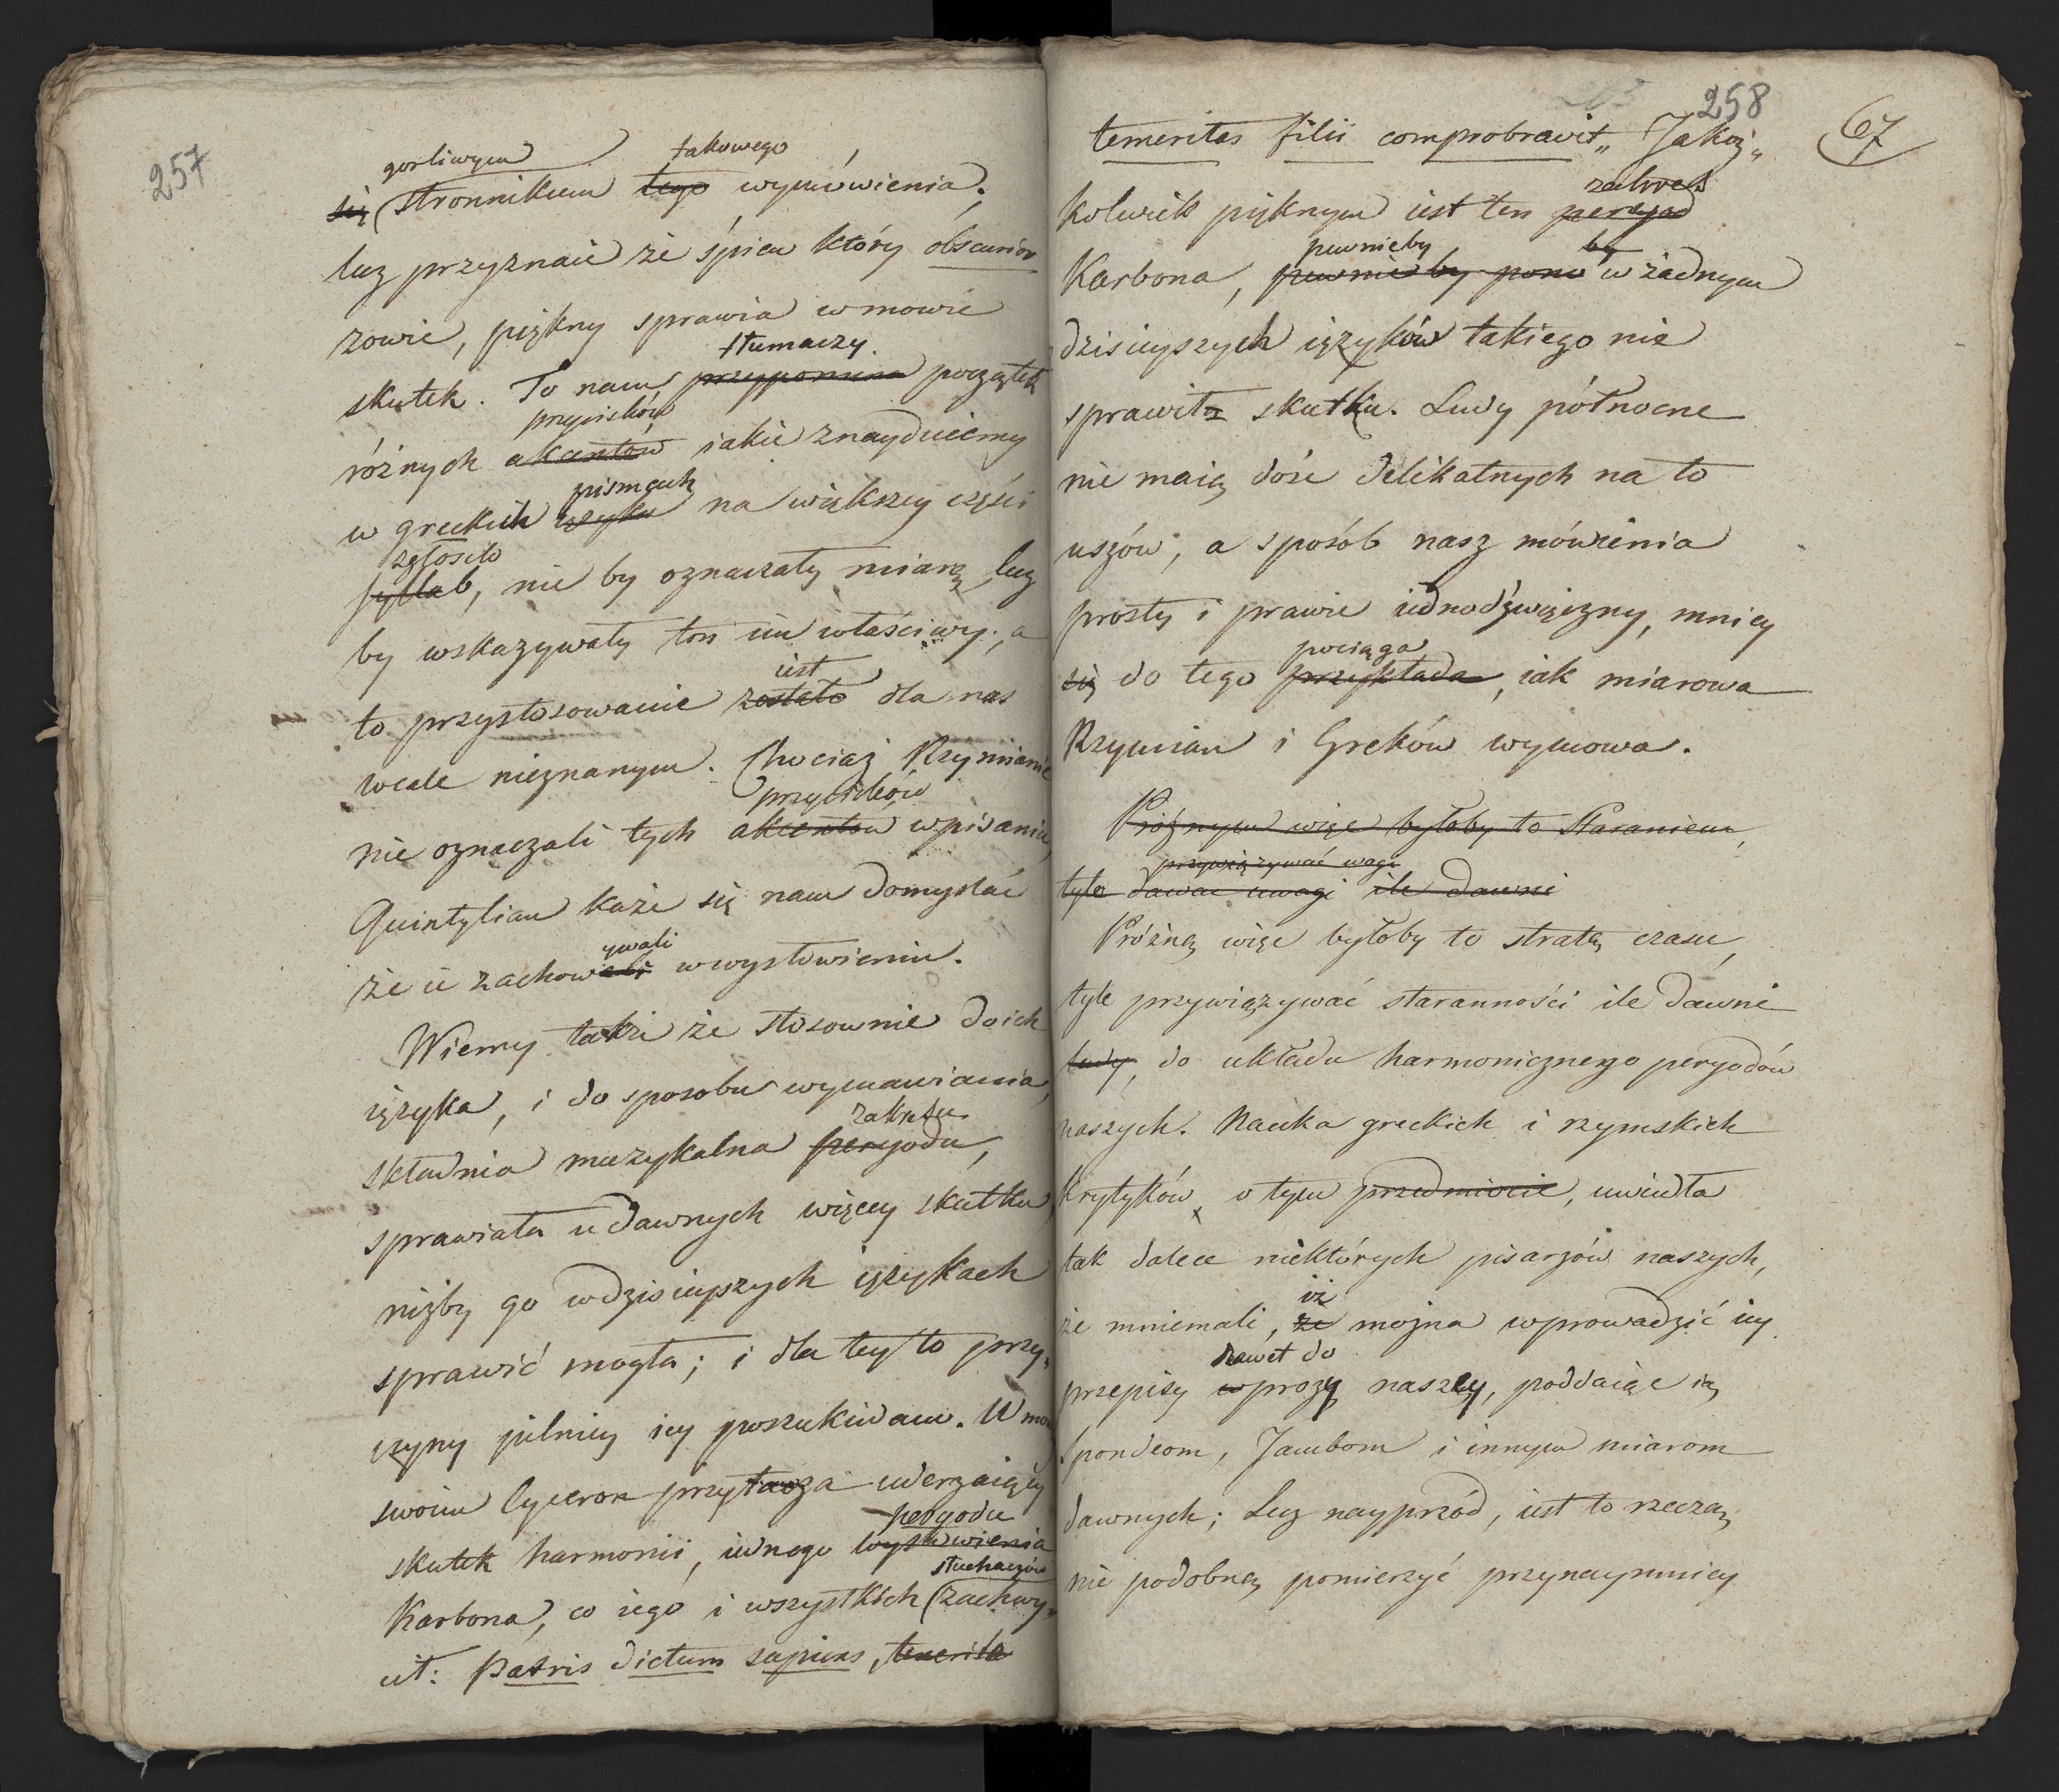 257
gorliwym takowego
się stronnikem tego wymówienia;
lecz przyznaie że śpiew który obscurior
zowie, piękny sprawia w mowie
tłumaczy.
skutek. To nam przypomina początek
przycisków
różnych akcentow iakie znayduiemy
pismach
w greckich ięzyku na większey części
zgłosek
syllab, nie by oznaczały miarę, lecz
by wskazywały ton im właściwy; a
iest
to przystosowanie zostało dla nas
wcale nieznanym. Chociaż Rzymianie
przycisków
nie oznaczali tych akcentow w pisaniu,
Quintylian każe się nam domyslać
ywali
że ie zachowali w wysłowieniu.
Wiemy także że stosownie do ich
ięzyka, i do sposobu wymawiania,
zakresu
składnia muzykalna peryodu,
sprawiała u dawnych więcey skutku,
niżby go w dzisieyszych ięzykach
sprawić mogła; i dla tey to przy„
czyny pilniey iey poszukiwano. W mow
swoim Cyceron przytacza uderzaiący
peryodu
skutek harmonii, iednego wysłowienia
słuchaczów
Karbona, co iego i wszystkich zachwy„
cił: Patris dictum sapiens, temerita
258
67
temeritas filii comprobravit„ Jakoż„
zakres
kolwiek pięknym iest ten peryod
pewnieby by
Karbona, pewnie by pono w żadnym
dzisieyszych ięzyków takiego nie
sprawił skutku. Ludy północne
nie maią dość delikatnych na to
uszów, a sposób nasz mówienia
prosty i prawie iednodźwięczny, mniey
pociąga
się do tego przykłada, iak miarowa
Rzymian i Greków wymowa.
Próżnym więc byłoby to staraniem,
przywiązywać wagi
tyle dawać uwagi ile dawni
Próżną więc byłoby to stratą czasu,
tyle przywiązywać staranności ile dawne
ludy, do układu harmonicznego peryodów
naszych. Nauka greckich i rzymskich
krytyków, o tym przedmiocie, uwiodła
tak dalece niektórych pisarzów naszych,
iż
że mniemali, że można wprowadzić iey
nawet do
przepisy w prozy naszey, poddaiąc ią
Spondeom, Jambom i innym miarom
dawnych; Lecz nayprzód, iest to rzeczą
nie podobną pomierzyć przynaymniey